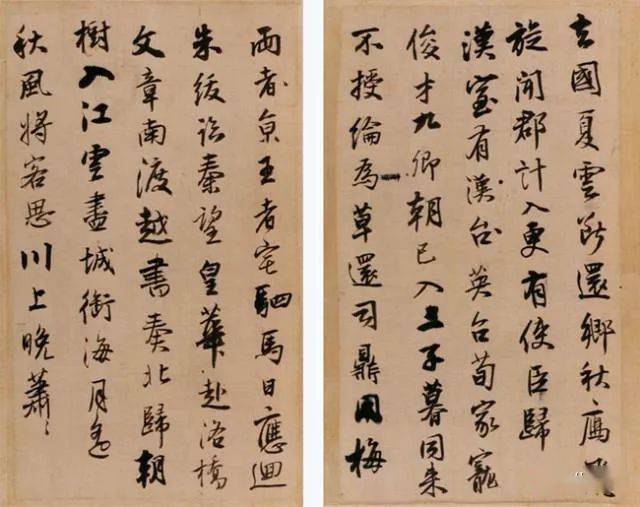 去國夏雲斷還鄉秋鴈飛
旋聞郡計入更有使臣歸
漢室有漢台英台荀家寵
俊才九卿朝已入三子暮同来
不授綸為草還司鼎用梅
兩者京王者宅駟馬日應迴
朱紱臨秦望皇華赴洛橋
文章南渡越書奏北歸朝
樹入江雲盡城銜海月遙
秋風將客思川上晚蕭〻